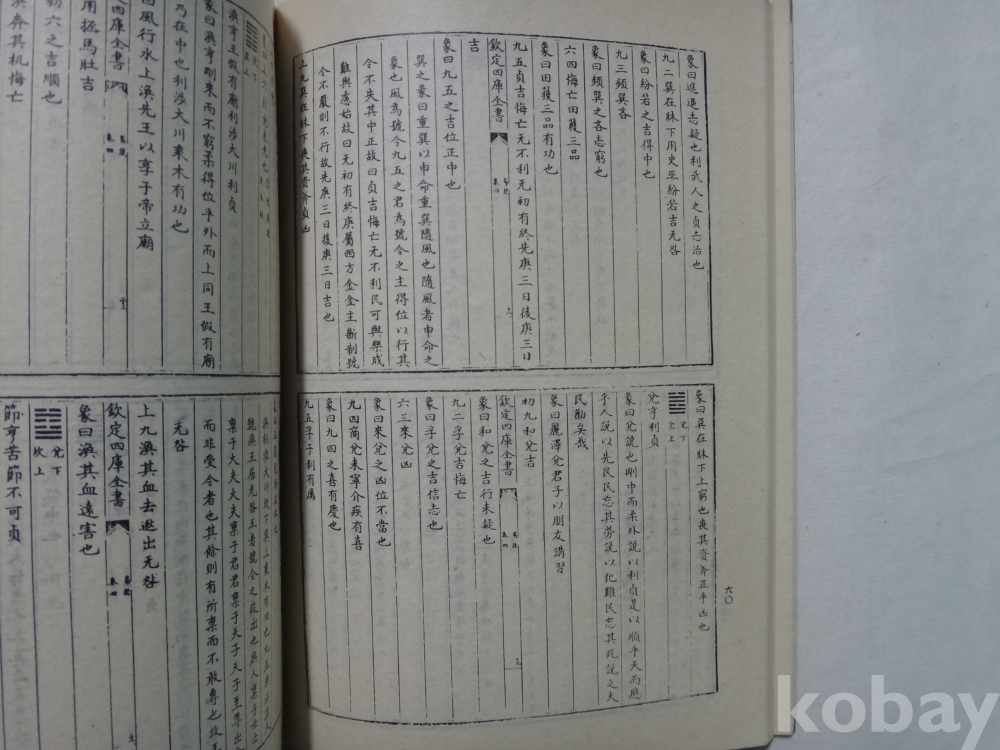 象曰進退志疑也利武人之貞志治也
九二巽在牀下用史巫紛若吉无咎
象曰紛若之吉得中也
九三頻巽吝
象曰頻巽之吝志窮也
六四悔亡田獲三品
象曰田獲三品有功也
九五貞吉悔亡无不利无初有終先庚三日後庚三日
欽定四庫全書
卷四
六
吉
象曰九五之吉位正中也
巽之彖曰重巽以申命重巽隨風也隨風者申命之
象也風為號令九五之君為號令之主得位以行其
令不失其中正故曰貞吉悔亡无不利民可與樂成
難與慮始故曰无初有終庚屬西方金金主斷制號
令不嚴則不行故先庚三日後庚三日吉也
上九巽在牀下喪其資斧貞凶
象曰巽在牀下上窮也喪其資斧正乎凶也
六〇
兌下
兌上
兌亨利貞
彖曰兌說也剛中而柔外說以利貞是以順乎天而應
乎人說以先民民忘其勞說以犯難民忘其死說之大
民勸矣哉
象曰麗澤兌君子以朋友講習
初九和兌吉
欽定四庫全書
卷四
九
象曰和兌之吉行未疑也
九二孚兌吉悔亡
象曰孚兌之吉信志也
六三來兌凶
象曰來兌之凶位不當也
九四商兌未寧介疾有喜
象曰九四之喜有慶也
九五孚于剝有厲
渙亨王假有廟利涉大川利貞
彖曰渙亨剛來而不窮柔得位乎外而上同王假有廟
乃在中也利涉大川乘木有功也
欽定四庫全書
卷四
象曰風行水上渙先王以享于帝立廟
初六
用拯馬壯吉
初六之吉順也
渙奔其机悔亡
號渙王居无咎王者號令之
稟于大夫大夫稟于君君稟于天子天子至尊
而非受令者也其餘則有所稟而不敢專也故
无咎
上九渙其血去逖出无咎
欽定四庫全書
卷四
象曰渙其血遠害也
兌下
坎上
節亨苦節不可貞
kobay